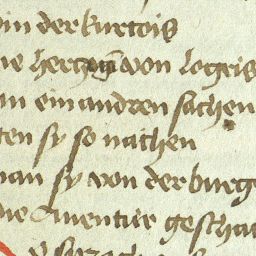 in der kurtois
ie hertzogī von logris
in ein andren sachen
ten sy so nachen
man sy von der burge
die Auentúr geschac